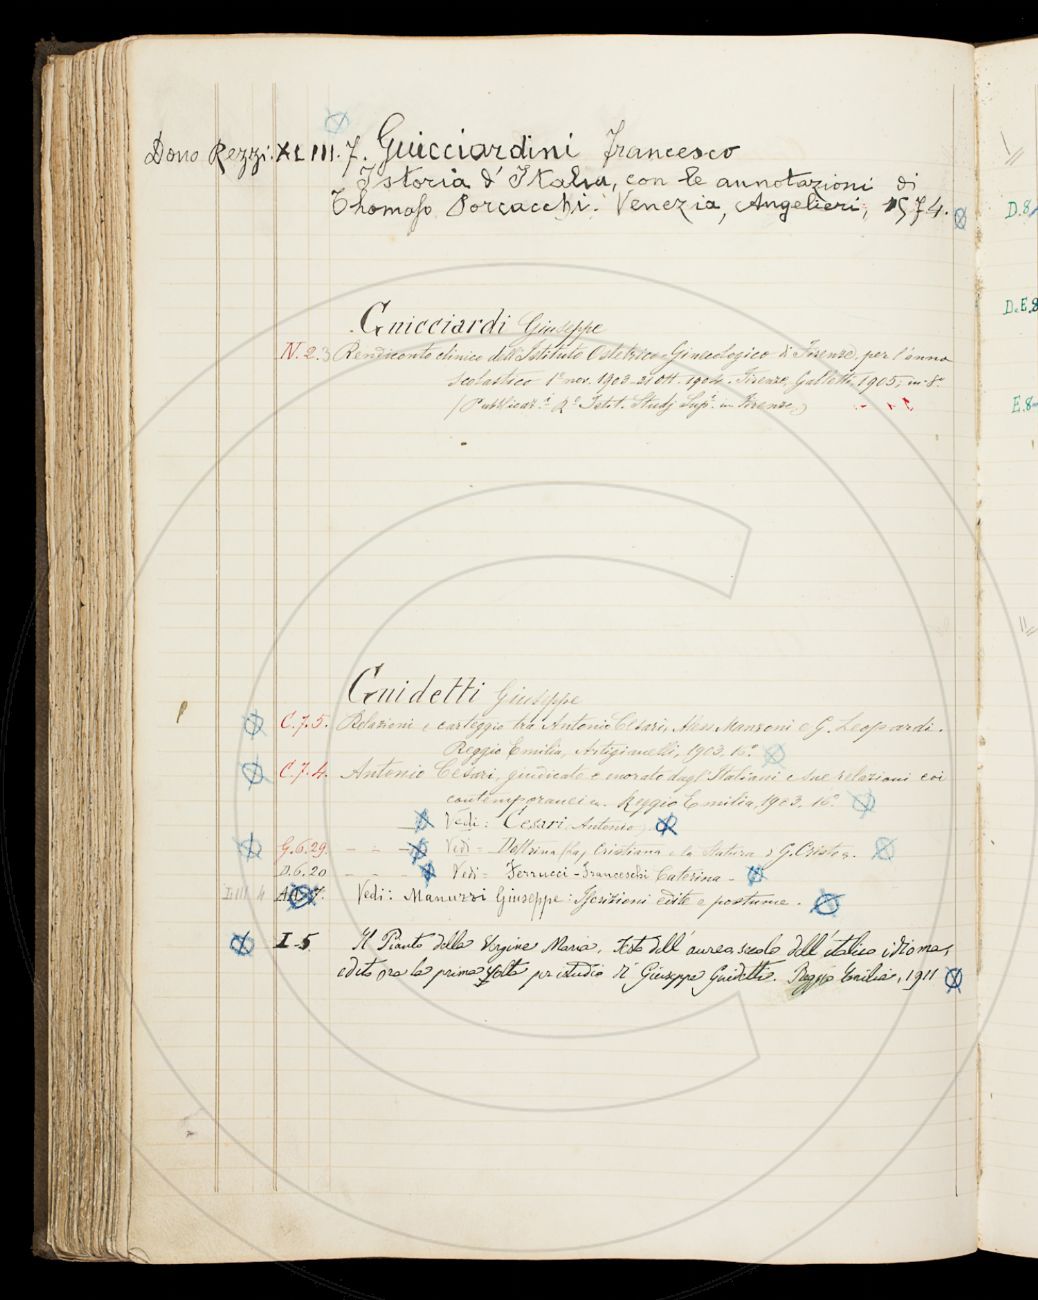 Dono Rezzi. XLIII. 7. Guicciardini Francesco
Istoria d' Italia, con le annotazioni di
Thomaso Porcacchi. Venezia, Angelieri, 1574.
D.8
D.E.8
Guicciardi Giuseppe
N. 2. 3 Rendiconto clinico dell'Istituto Ostetrico-Ginecologico di Firenze, per l'anno
scolastico 1º nov. 1903-31 ott. 1904. Firenze, Galletti, 1905, in-8º
(Pubblicaz.i Rº Istit. Studj Supi. in Firenze.)
E.8
Guidetti Giuseppe
C.7.5. Relazioni e carteggio tra Antonio Cesari, Aless. Manzoni e G. Leopardi.
Reggio Emilia, Artigianelli, 1903. 16º
C.7.4. Antonio Cesari, giudicato e onorato dagl'Italiani e sue relazioni coi
contemporanei. Reggio Emilia, 1903. 16º
Vedi: Cesari Antonio
G.6.29. Vedi = Dottrina Cristiana e la Statura di G. Cristo
D.6.20 Vedi = Ferrucci-Franceschi Caterina -
Vedi: Manuzzi Giuseppe: Iscrizioni edite e postume.
I-5 Il Pianto della Vergine Maria. Testo dell' aureo secolo dell' italico idioma,
edito ora la prima volta per istudio di Giuseppe Guidetti. Reggio Emilia, 1911